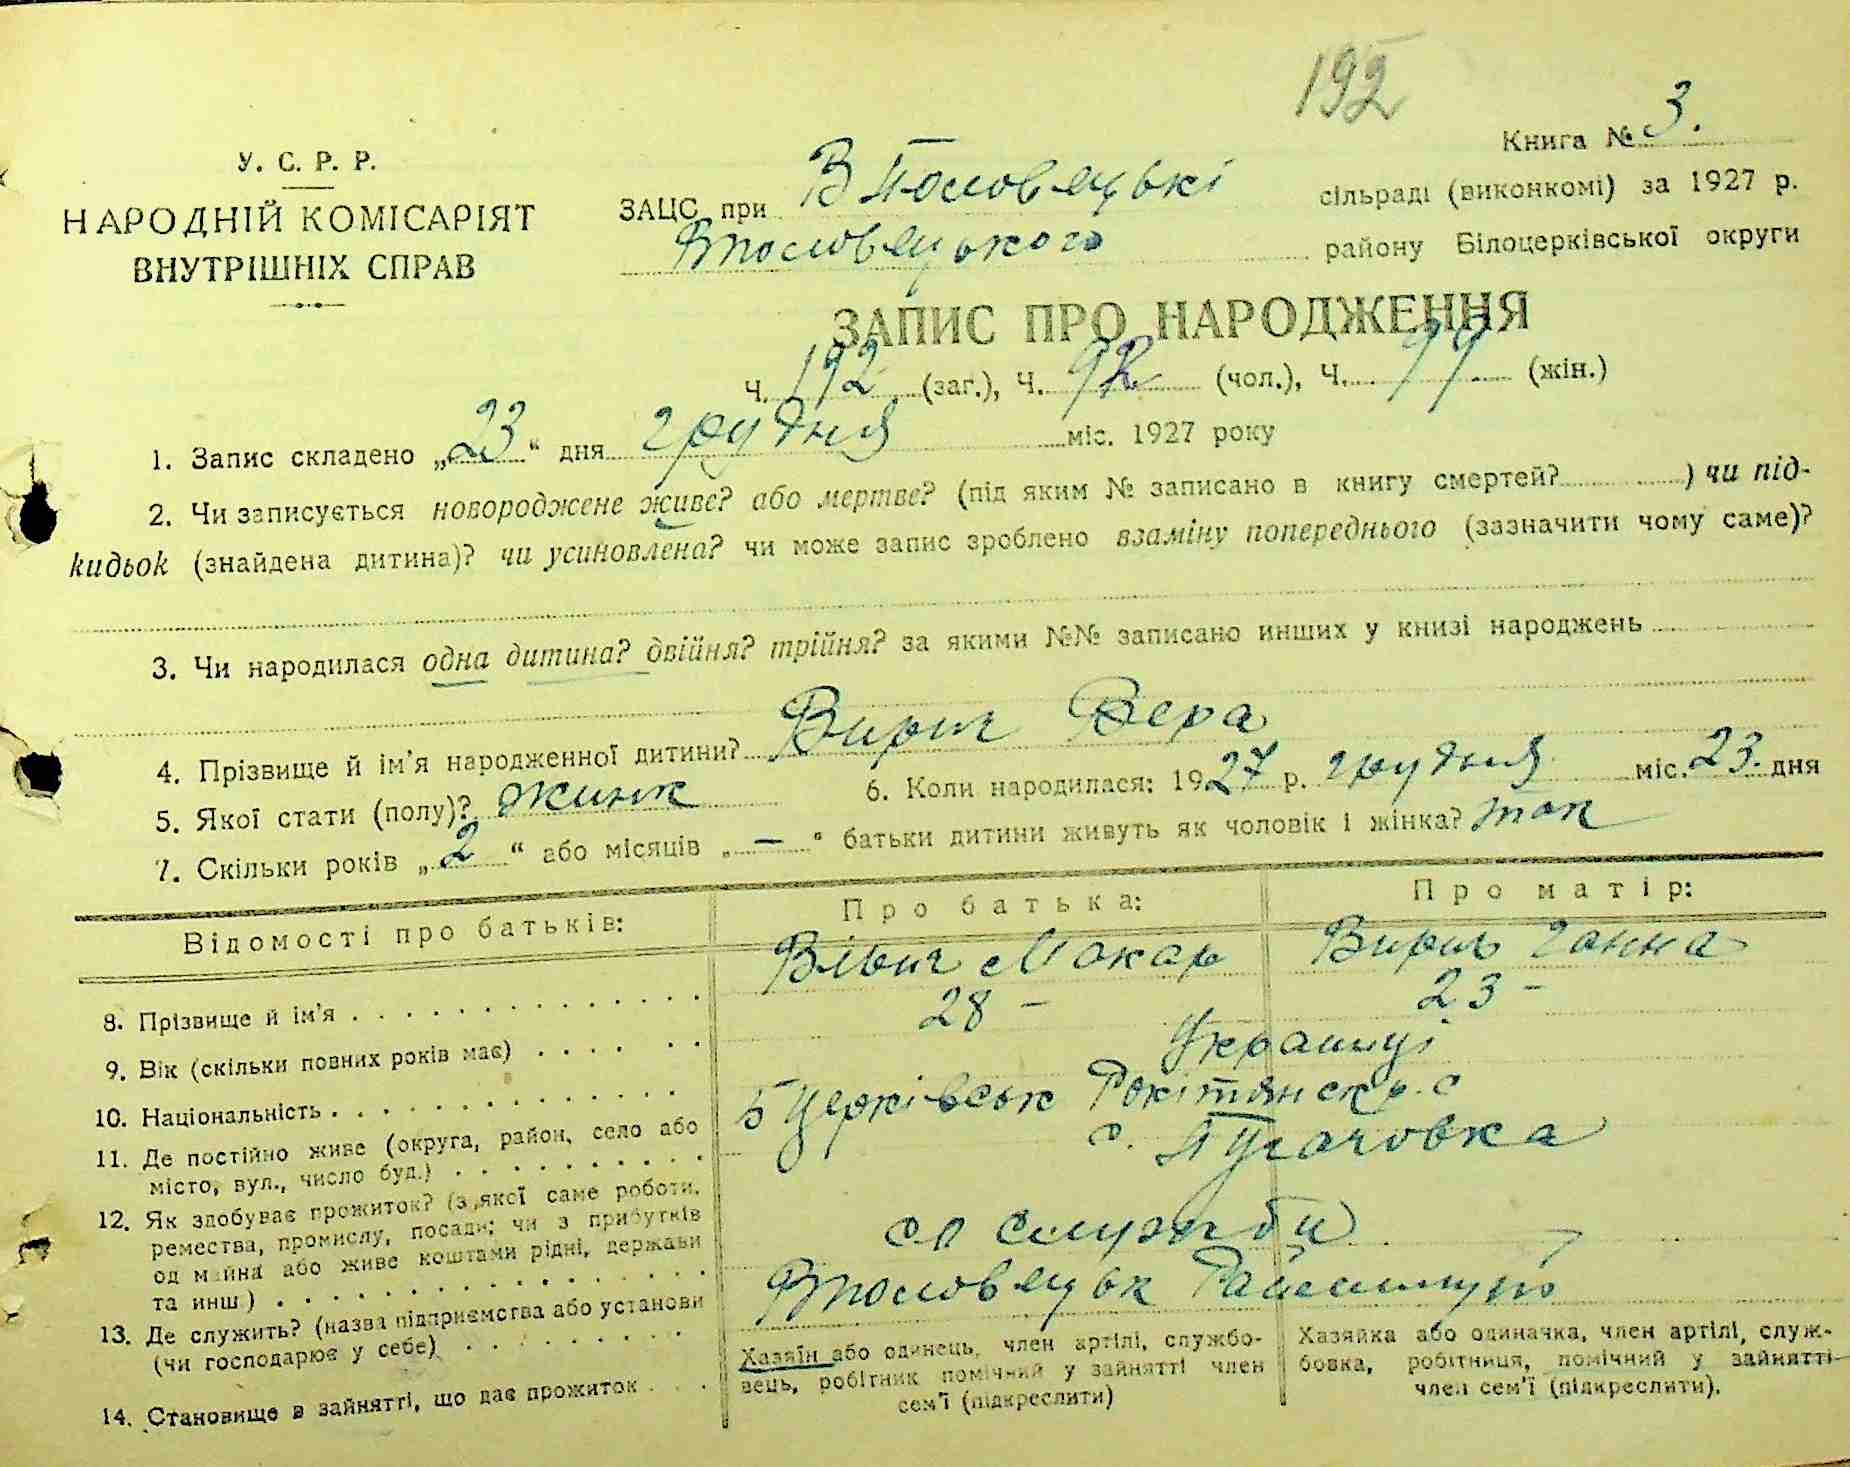 192
Книга № 3.
У. С. Р. Р.
НАРОДНІЙ КОМІСАРІЯТ
ВНУТРІШНІХ СПРАВ
ЗАЦС при В Половецькі сільраді (виконкомі) за 1927 р.
Вполовецького району Білоцерківської округи
ЗАПИС ПРО НАРОДЖЕННЯ
Ч. 192 (заг.), Ч. 92 (чол.), Ч. 99 (жін.)
1. Запис складено „23“ дня грудня міс. 1927 року
2. Чи записується новороджене живе? або мертве? (під яким № записано в книгу смертей? ) чи під-
кидьок (знайдена дитина)? чи усиновлена? чи може запис зроблено взаміну попереднього (зазначити чому саме)?
3. Чи народилася одна дитина? двійня? трійня? за якими №№ записано инших у книзі народжень
4. Прізвище й ім’я народженної дитини? Вирич Вера
5. Якої стати (полу)? жинк 6. Коли народилася: 1927 р. грудня міс. 23. дня
7. Скільки років „2“ або місяців „—“ батьки дитини живуть як чоловік і жінка? так
Відомості про батьків: Про батька: Про матір:
8. Прізвище й ім’я Макар Ганна
9. Вік (скільки повних років має) 28 – 23 –
10. Національність Українці
11. Де постійно живе (округа, район, село або
місто, вул., число буд.) Б Церківськ Рокітянськ. с
с. Пугачовка
12. Як здобуває прожиток? (з якої саме роботи,
ремества, промислу, посади; чи з прибутків
од майна або живе коштами рідні, держави
та инш.) служби
13. Де служить? (назва підприємства або установи
(чи господарює у себе) Вполовецьк
14. Становище в зайнятті, що дає прожиток
Хазяїн або одинець, член артілі, службо-
вець, робітник помічний у зайнятті член
сем’ї (підкреслити)
Хазяйка або одиначка, член артілі, служ-
бовка, робітниця, помічний у зайнятті
член сем’ї (підкреслити).